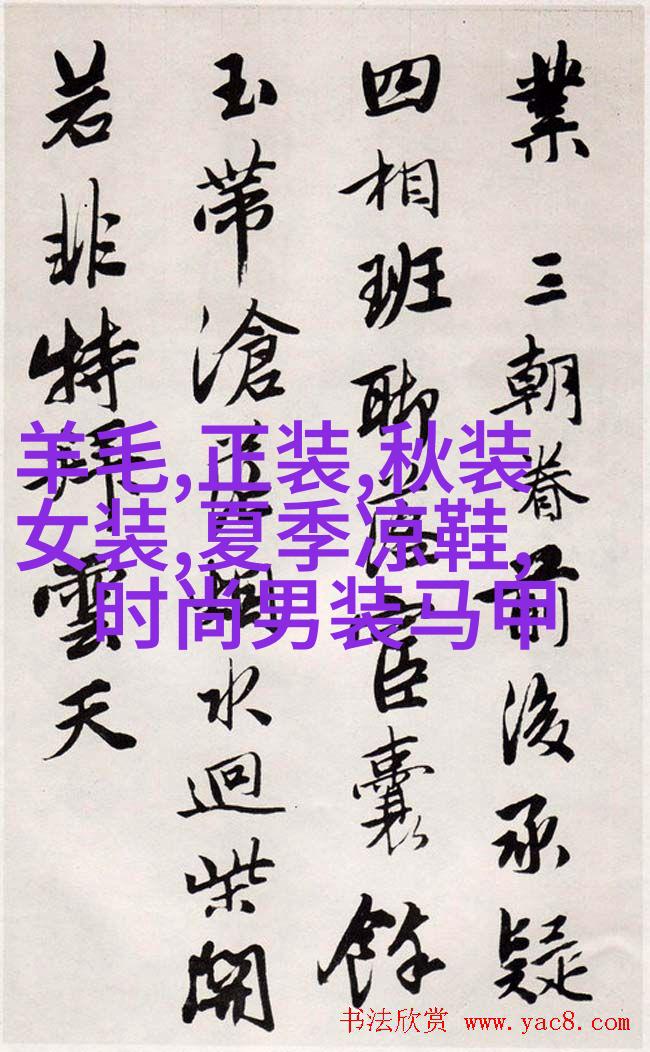 業 三朝眷前後承疑
四相班聯臣囊餘
玉帶滄水迴柴開
若非特拜雲天
羊毛,正装,秋装
女装,夏季凉鞋,
时尚男装马甲
书法欣赏 www.yac8.com